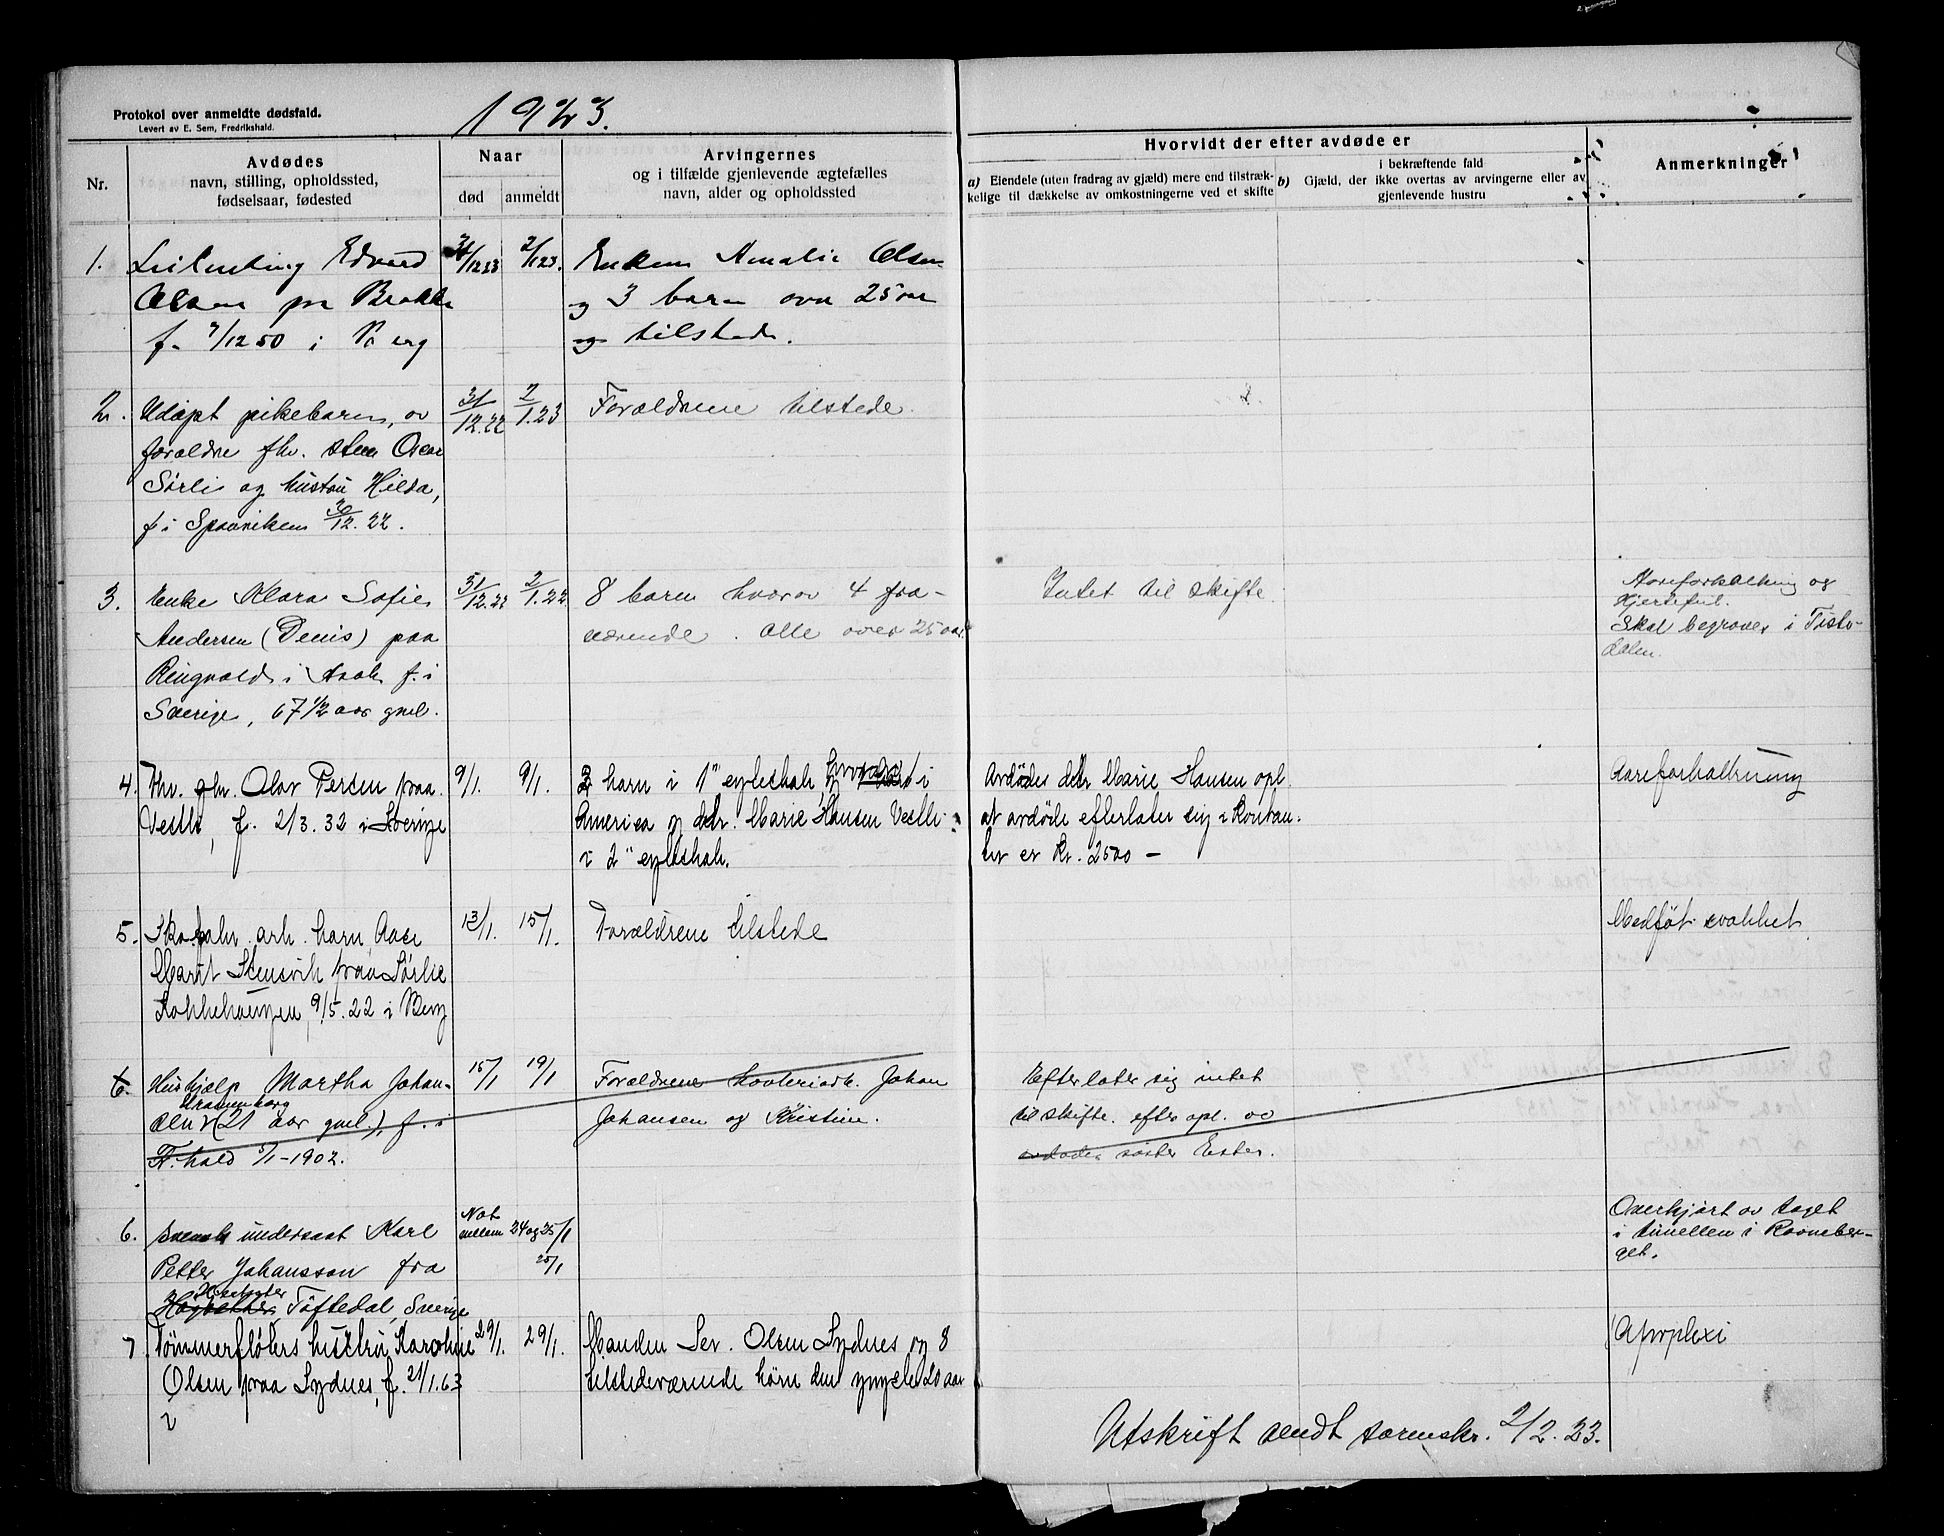 Protokol over anmeldte dødsfald.
Levert av E. Sem, Fredrikshald.
1923.
Nr.
Avdødes
navn, stilling, opholdssted,
fødselsaar, fødested
Naar
død
anmeldt
Arvingernes
og i tilfælde gjenlevende ægtefælles
navn, alder og opholdssted
Hvorvidt der efter avdøde er
a) Eiendele (uten fradrag av gjæld) mere end tilstræk-
kelige til dækkelse av omkostningerne ved et skifte
i bekræftende fald
b) Gjæld, der ikke overtas av arvingerne eller av
gjenlevende hustru
Anmerkninger
1.
Edvard
Olsen paa Brekke
f. 7/12 50 i Berg
31/12 23
2/1 23.
Enken Amalie Olsen
og 3 barn over 25 aar
og tilstede.
2.
Udøpt pikebarn, av
forældre fhv. Oscar
Sørli og hustru Hilda,
f. i Sponviken 30/12. 22.
31/12. 22
2/1. 23
Forældrene tilstede.
3.
Enke Klara Sofie
Andersen (Denis) paa
Ringvold i Asak f. i
Sverige, 67 1/2 aar gml.
31/12. 22
2/1. 22
8 barn hvorav 4 fra-
værende. Alle over 25 aar.
Intet til skifte.
Aareforkalkning og
Hjertefeil.
Skal begraves i Tiste-
dalen.
4.
Fhv. gbr. Olav Persen paa
Vestli, f. 2/3. 32 i Sverige
9/1.
9/1.
2 barn i 1" egteskab, hvorav 1 i
America og dtr. Marie Hansen Vestli
i 2" egteskab.
Avdødes dtr Marie Hansen opl.
at avdøde efterlater sig i kontan-
ter er kr. 2500 –
Aareforkalkning
5.
Skofabr. arb. barn Aase
Marit Stensvik paa Sørlie
Kokkehaugen, 9/5. 22 i Berg
13/1.
15/1.
Forældrene tilstede
Medføt svakhet.
6.
Hushjælp Martha Johan-
Kranenborg
sen (21 aar gml.), f. i
Fr.hald 5/1-1902.
15/1
19/1
Forældrene Johan
Johansen og Kristine.
Efterlater sig intet
til skifte. efter opl. av
avdødes søster Ester.
6.
Svensk undersaat Karl
Petter Johansson fra
Töftedal, Sverige
Nat
mellem 24 og 25/1
25/1
Overkjørt av toget
i tunellen i Ravneber-
get.
7
Tømmerfløters hustru Karoline
Olsen paa Sydnes, f. 21/1. 63
i
29/1.
29/1.
Manden Sev. Olsen Sydnes og 8
tilstedeværende børn den yngste 20 aar
Apoplexi
Utskrift sendt sorenskr. 2/2. 23.